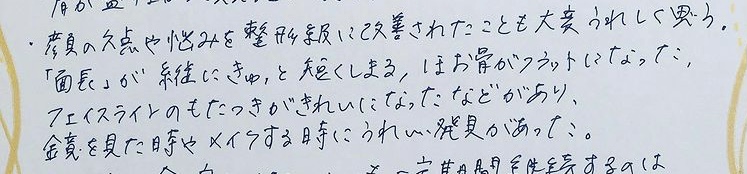 ・顔の欠点や悩みを整形級に改善されたことも大変うれしく思う。
「面長」が縦にきゅっと短くしまる, ほお骨がフラットになった,
フェイスラインのもたつきがきれいになったなどがあり、
鏡を見た時やメイクする時にうれしい発見があった。
定期間継続するのは